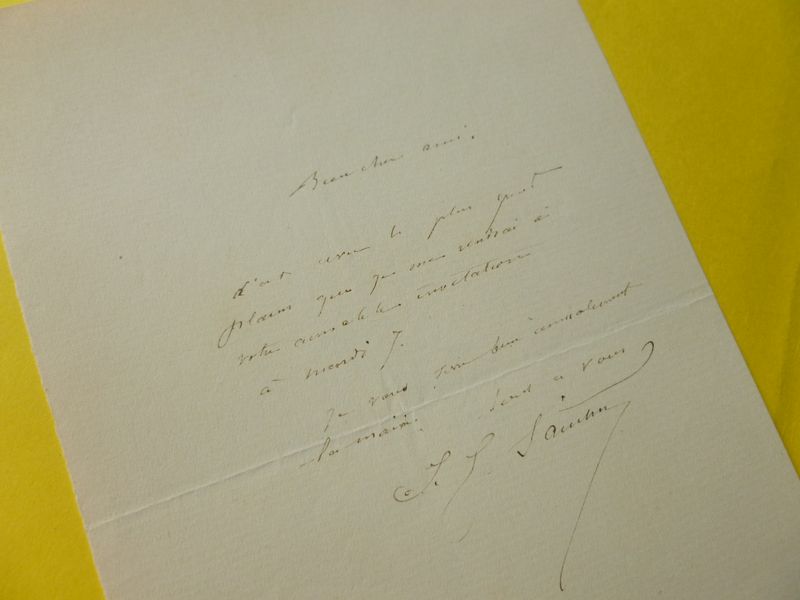 Bien cher ami,
C'est avec le plus grand
plaisir que je me rendrai à
votre aimable invitation
à mardi 7.
Je vous serre bien cordialement
la main. Tout à vous